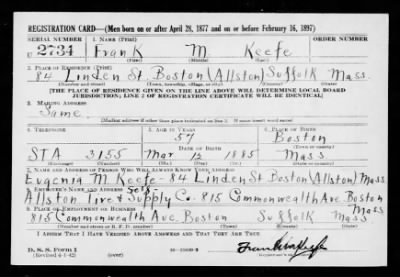 REGISTRATION CARD—(Men born on or after April 28, 1877 and on or before February 16, 1897)
SERIAL NUMBER 1. NAME (Print) ORDER NUMBER
U 2734 Frank M. Keefe
(First) (Middle) (Last)
2. PLACE OF RESIDENCE (Print)
84 Linden St. Boston (Allston) Suffolk Mass.
(Number and street) (Town, township, village, or city) (County) (State)
[THE PLACE OF RESIDENCE GIVEN ON THE LINE ABOVE WILL DETERMINE LOCAL BOARD
JURISDICTION; LINE 2 OF REGISTRATION CERTIFICATE WILL BE IDENTICAL]
3. MAILING ADDRESS
Same
[Mailing address if other than place indicated on line 2. If same insert word same]
4. TELEPHONE 5. AGE IN YEARS 6. PLACE OF BIRTH
57 Boston
DATE OF BIRTH (Town or county)
STA 3155 Mar 12 1885 Mass
(Exchange) (Number) (Mo.) (Day) (Yr.) (State or country)
7. NAME AND ADDRESS OF PERSON WHO WILL ALWAYS KNOW YOUR ADDRESS
Eugenia M. Keefe 84 Linden St Boston (Allston) Mass.
8. EMPLOYER'S NAME AND ADDRESS Self
Allston Tire & Supply Co. 815 Commonwealth Ave. Boston
Mass
9. PLACE OF EMPLOYMENT OR BUSINESS
815 Commonwealth Ave. Boston Suffolk Mass
(Number and street or R. F. D. number) (Town) (County) (State)
I AFFIRM THAT I HAVE VERIFIED ABOVE ANSWERS AND THAT THEY ARE TRUE.
D. S. S. Form 1
(Revised 4-1-42) Frank M Keefe